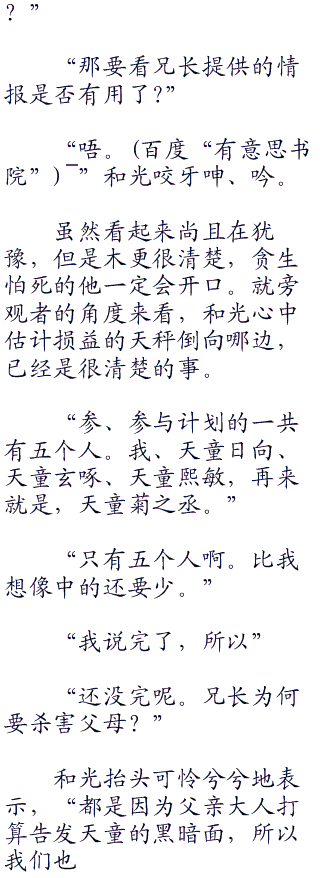 ？”
“那要看兄长提供的情
报是否有用了?”
“唔。(百度“有意思书
院”)¯”和光咬牙呻、吟。
虽然看起来尚且在犹
豫，但是木更很清楚，贪生
怕死的他一定会开口。就旁
观者的角度来看，和光心中
估计损益的天秤倒向哪边，
已经是很清楚的事。
“参、参与计划的一共
有五个人。我、天童日向、
天童玄啄、天童熙敏，再来
就是，天童菊之丞。”
“只有五个人啊。比我
想像中的还要少。”
“我说完了，所以”
“还没完呢。兄长为何
要杀害父母？”
和光抬头可怜兮兮地表
示，“都是因为父亲大人打
算告发天童的黑暗面，所以
我们也